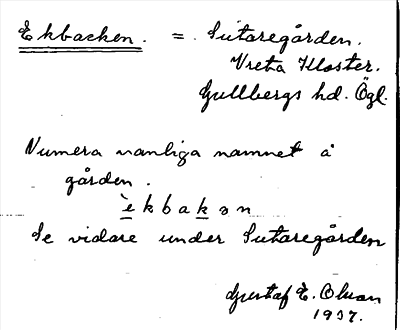 Ekbacken. = Sutaregården.
Vreta Kloster.
Gullbergs hd. Ögl.
Numera vanliga namnet å
gården.
èkbakən
Se vidare under Sutaregården
Gustaf E. Olsson
1937.